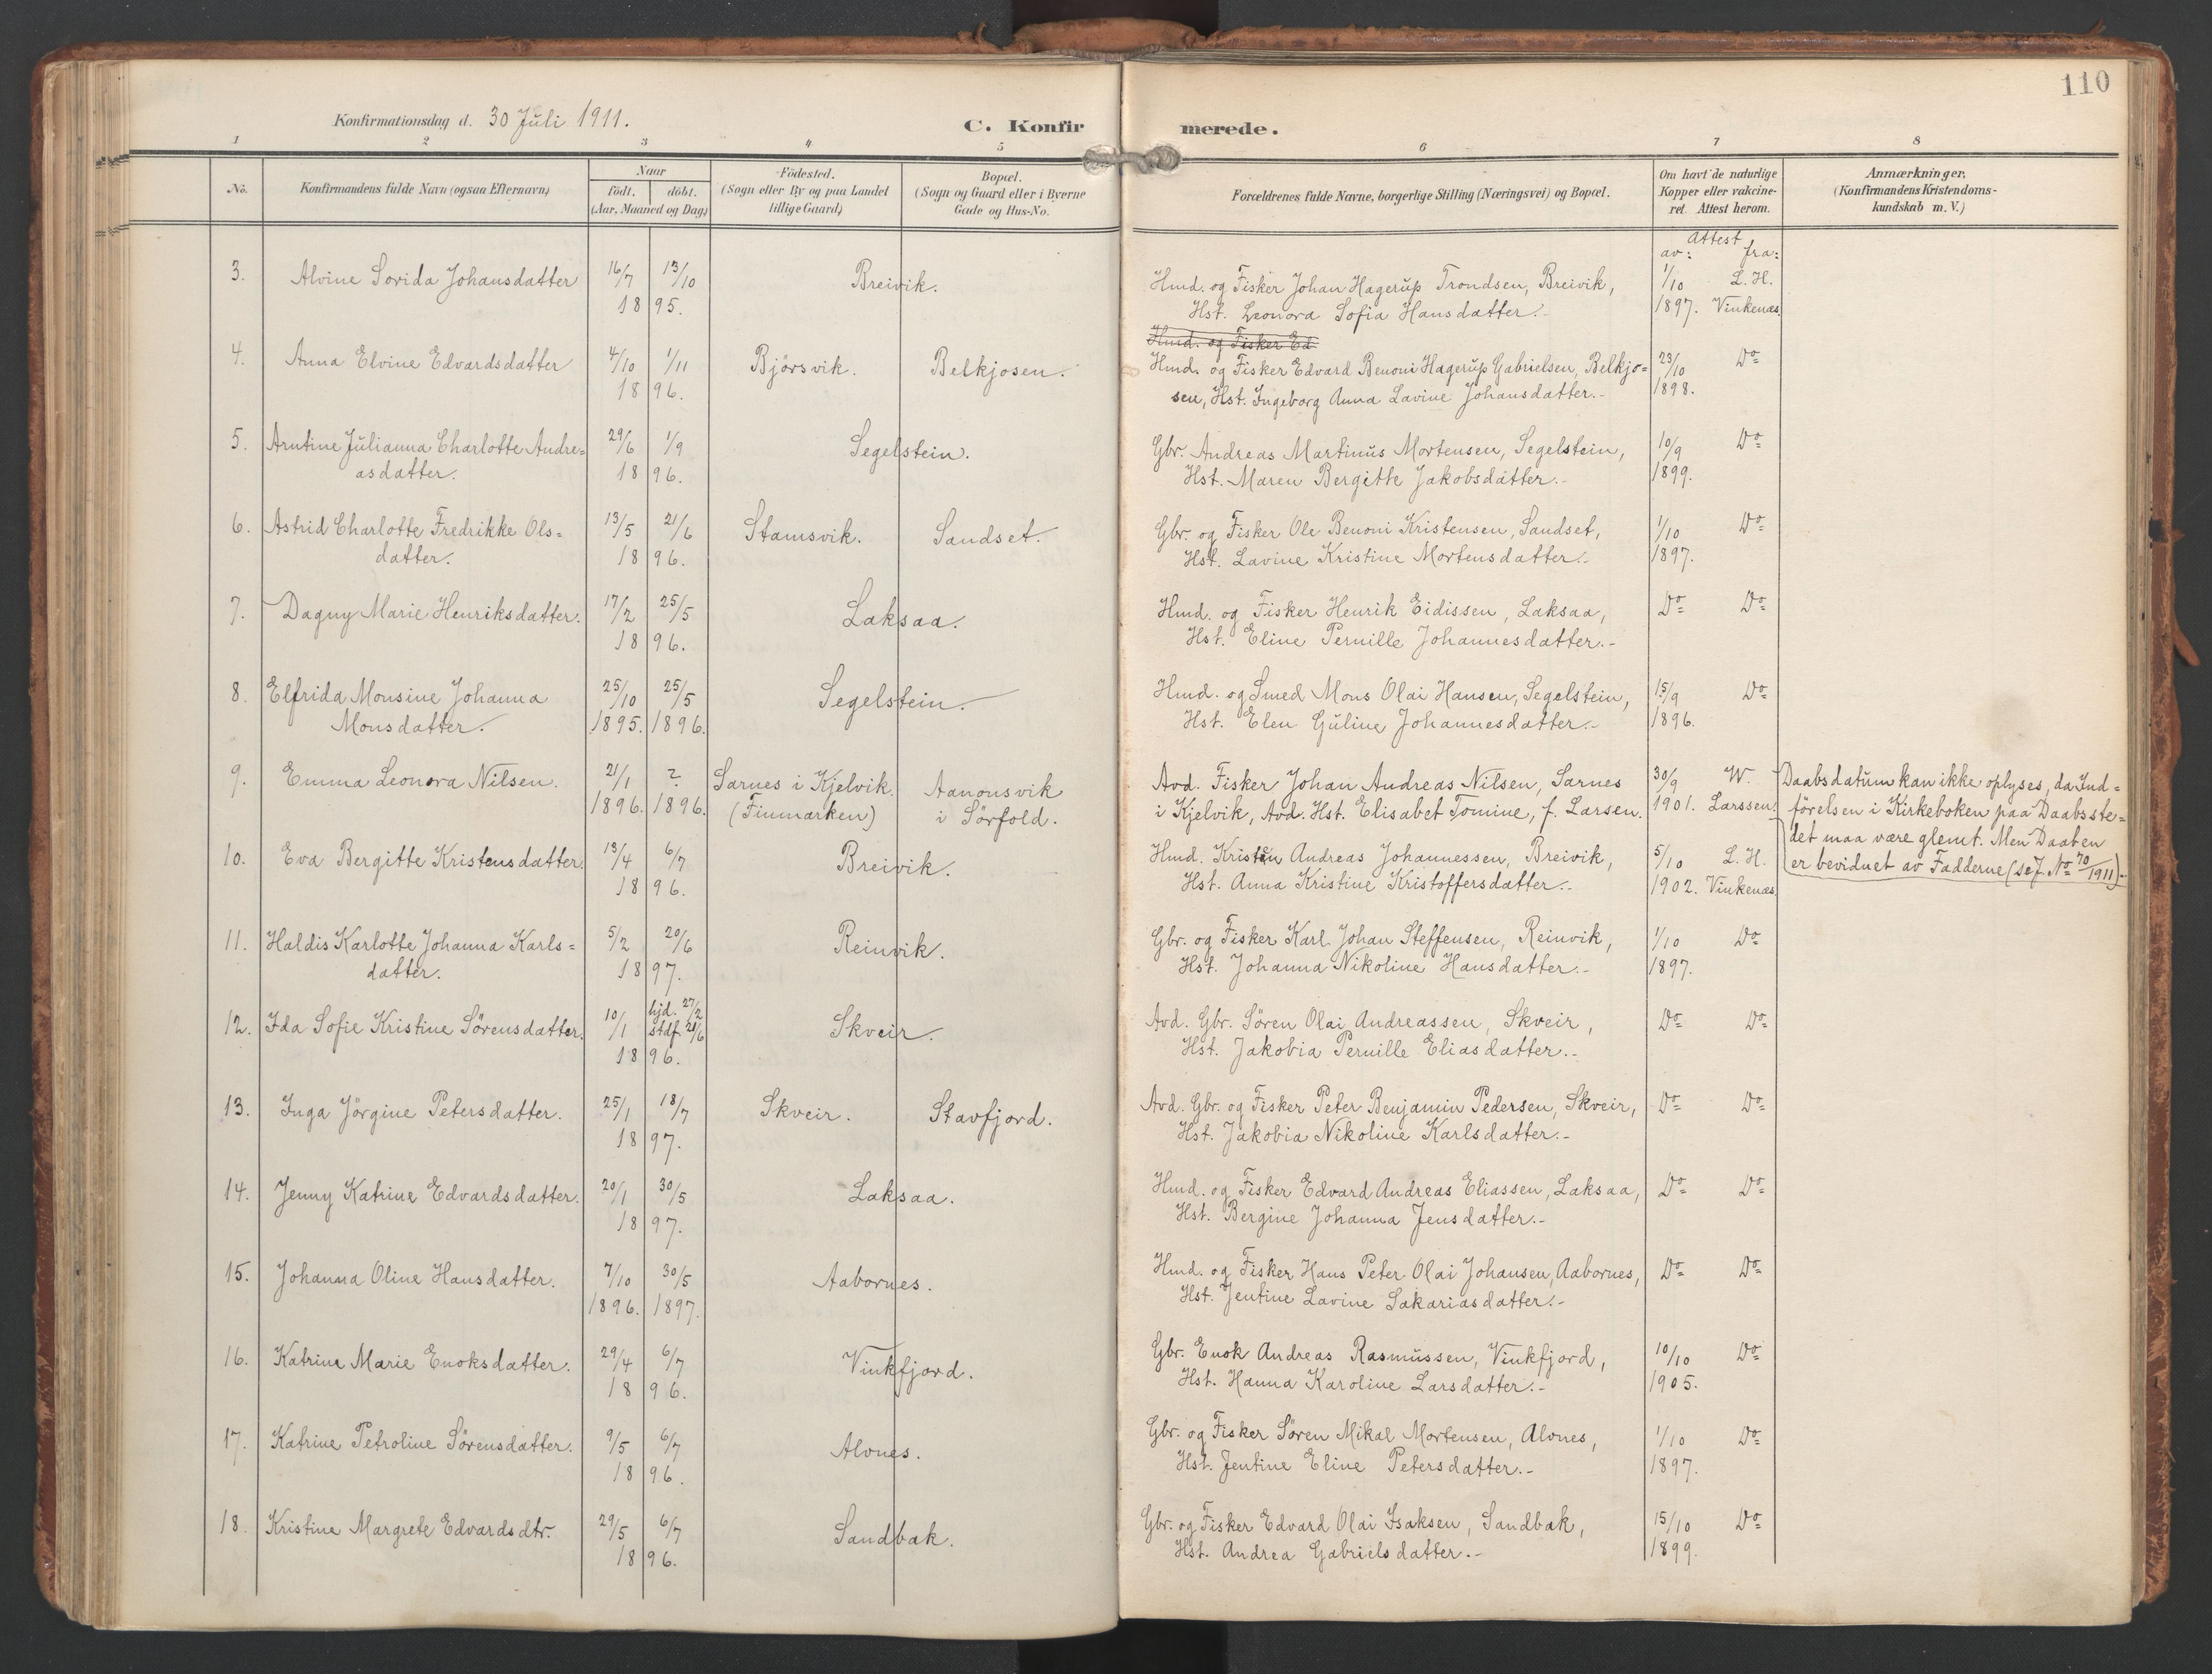 110
Konfirmationsdag d. 30 Juli 1911.
C. Konfirmerede.
1 2 3 4 5 6 7 8
No.
Konfirmandens fulde Navn (ogsaa Efternavn)
Naar
födt. döbt.
(Aar, Maaned og Dag)
Födested.
(Sogn eller By og paa Landet
tillige Gaard)
Bopæl.
(Sogn og Gaard eller i Byerne
Gade og Hus-No.
Forældrenes fulde Navne, borgerlige Stilling (Næringsvei) og Bopæl.
Om havt de naturlige
Kopper eller vakcine-
ret. Attest herom.
Anmærkninger.
(Konfirmandens Kristendoms-
kundskab m. V.)
Attest
av: fra:
3. Alvine Sovida Johansdatter 16/7 13/10 Breivik. Hmd. og Fisker Johan Hagerup Trondsen, Breivik, 1/10 L. H.
1895. Hst. Leonora Sofia Hansdatter.- 1897. Vinkenæs.
Hmd. og Fisker Ed.
4. Anna Elvine Edvardsdatter 4/10 1/11 Björsvik. Belkjosen. Hmd. og Fisker Edvard Benoni Hagerup Gabrielsen, Belkjo= 23/10 Do
1896. sen, Hst. Ingeborg Anna Lavine Johansdatter.- 1898.
5. Arntine Julianna Charlotte Andre= 29/6 1/9 Segelstein. Gbr. Andreas Martinus Mortensen, Segelstein, 10/9 Do
asdatter. 1896. Hst. Maren Bergitte Jakobsdatter.- 1899.
6. Astrid Charlotte Fredrikke Ols= 13/5 21/6 Stamsvik. Sandset. Gbr. og Fisker Ole Benoni Kristensen, Sandset, 1/10 Do
datter. 1896. Hst. Lavine Kristine Mortensdatter.- 1897.
7. Dagny Marie Henriksdatter. 17/2 25/5 Laksaa. Hmd. og Fisker Henrik Eidissen, Laksaa, Do Do
1896. Hst. Eline Pernille Johannesdatter.-
8. Elfrida Monsine Johanna 25/10 25/5 Segelstein. Hmd. og Smed Mons Olai Hansen, Segelstein, 15/9 Do
Monsdatter. 1895. 1896. Hst. Elen Guline Johannesdatter.- 1896.
9. Emma Leonora Nilsen. 21/1 ? Sarnes i Kjelvik. Aanonsvik Avd. Fisker Johan Andreas Nilsen, Sarnes 30/9 W.
1896. 1896. (Finmarken) i Sörfold. i Kjelvik, Avd. Hst. Elisabet Tomine, f. Larsen. 1901. Larssen.
Daabsdatum kan ikke oplyses, da Ind=
förelsen i Kirkeboken paa Daabsste=
det maa være glemt. Men Daaben
er bevidnet av Fadderne (se J. No 70/1911).
10. Eva Bergitte Kristensdatter. 13/4 6/7 Breivik. Hmd. Kristen Andreas Johannessen, Breivik, 5/10 L. H.
1896. Hst. Anna Kristine Kristoffersdatter.- 1902. Vinkenæs
11. Haldis Karlotte Johanna Karls= 5/2 20/6 Reinvik. Gbr. og Fisker Karl Johan Steffensen, Reinvik, 1/10 Do
datter. 1897. Hst. Johanna Nikoline Hansdatter.- 1897.
12. Ida Sofie Kristine Sörensdatter. 10/1 hjd. 27/2 Skveir. Avd. Gbr. Sören Olai Andreassen, Skveir, Do Do
stdf. 21/6
1896. Hst. Jakobia Pernille Eliasdatter.-
13. Inga Jörgine Petersdatter. 25/1 18/7 Skveir. Stavfjord. Avd. Gbr. og Fisker Peter Benjamin Pedersen, Skveir, Do Do
1897. Hst. Jakobia Nikoline Karlsdatter.-
14. Jenny Katrine Edvardsdatter. 20/1 30/5 Laksaa. Hmd. og Fisker Edvard Andreas Eliassen, Laksaa, Do Do
1897. Hst. Bergine Johanna Jensdatter.-
15. Johanna Oline Hansdatter. 7/10 30/5 Aabornes. Hmd. og Fisker Hans Peter Olai Johansen, Aabornes, Do Do
1896. 1897. Hst. Jentine Lavine Sakariasdatter.-
16. Katrine Marie Enoksdatter. 29/4 6/7 Vinkfjord. Gbr. Enok Andreas Rasmussen, Vinkfjord, 10/10 Do
1896. Hst. Hanna Karoline Larsdatter.- 1905.
17. Katrine Petroline Sörensdatter. 9/5 6/7 Alvnes. Gbr. og Fisker Sören Mikal Mortensen, Alvnes, 1/10 Do
1896. Hst. Jentine Eline Petersdatter.- 1897.
18. Kristine Margrete Edvardsdtr. 29/5 6/7 Sandbak. Gbr. og Fisker Edvard Olai Isaksen, Sandbak, 15/10 Do
1896. Hst. Andrea Gabrielsdatter.- 1899.